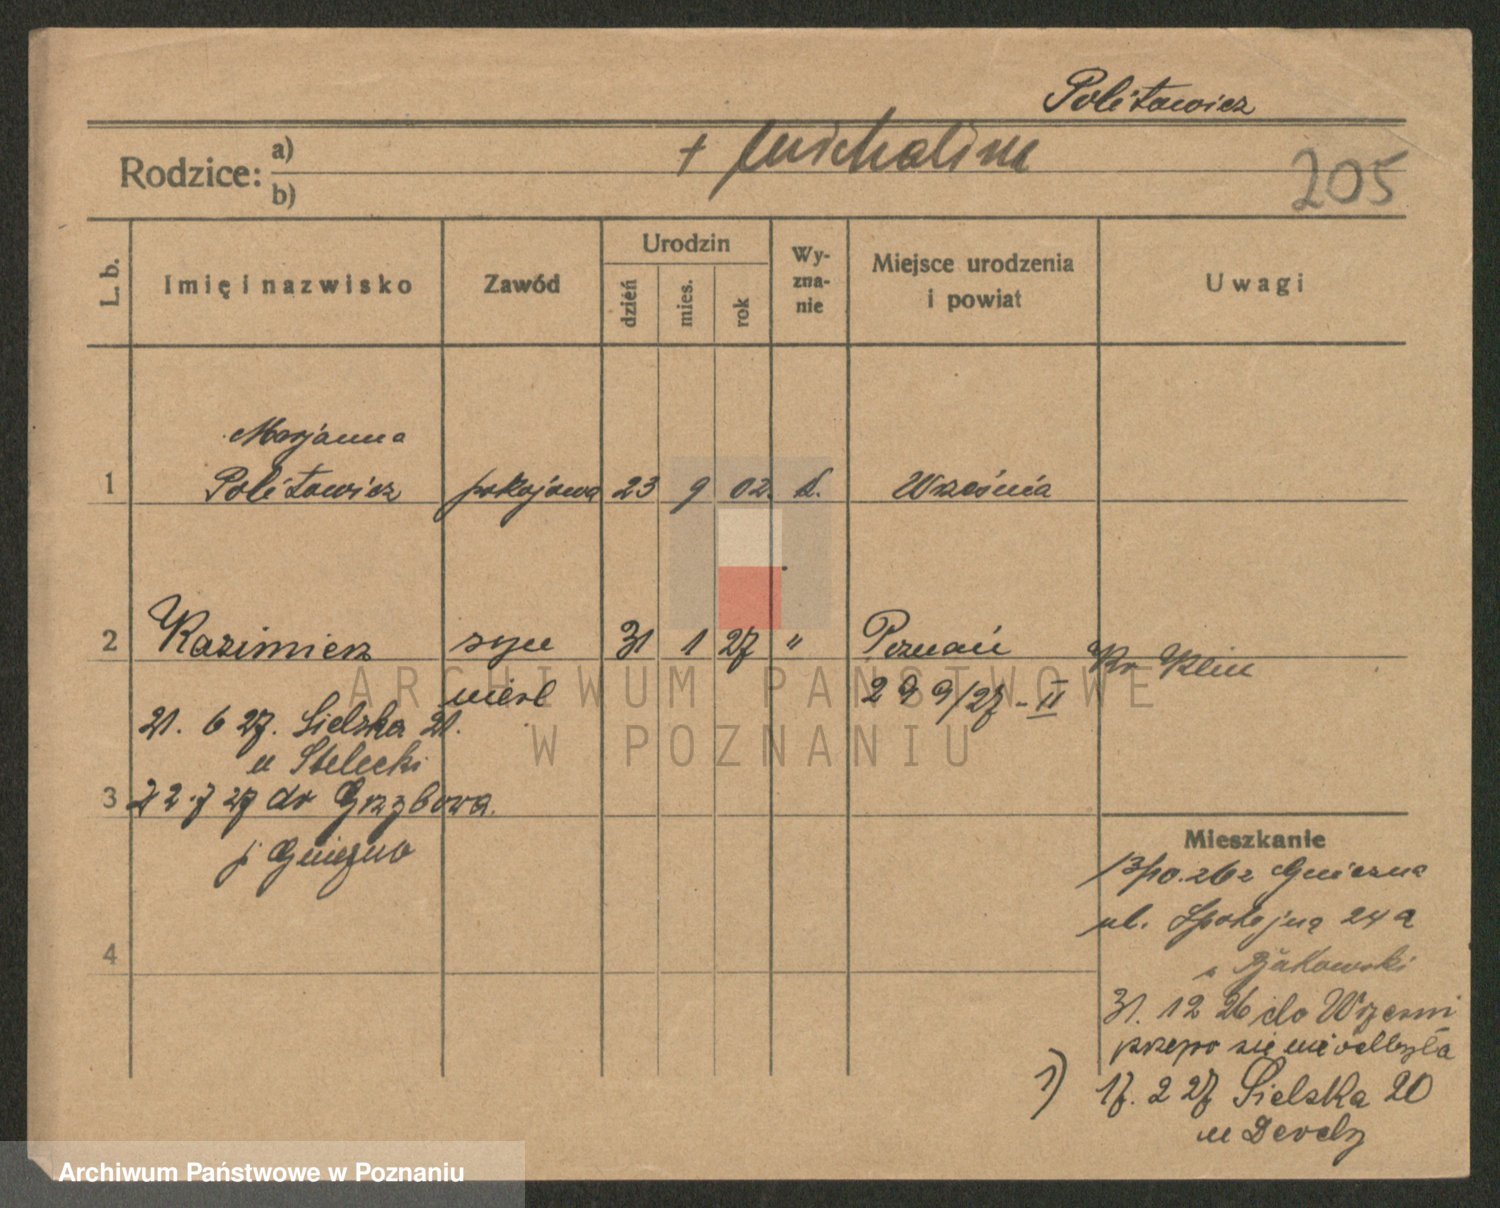 Politowicz
Rodzice: a)
b)
+ Michalina
205
L. b.
Imię i nazwisko
Zawód
Urodzin
dzień
mies.
rok
Wy-
zna-
nie
Miejsce urodzenia
i powiat
Uwagi
Marjanna
1 Politowicz pokojowa 23 9 02. k. Września
2 Kazimierz syn 31 1 27 " Poznań
nieśl 299/27-II
21. 6 27. Sielska 21.
u Stelecki
3 22.7 27 do Grzybowa.
p Gniezno
4
Mieszkanie
13/10.26 z Gniezna
ul. Spokojną 24a
31. 12 26 do Wrześni
przepr się nie odbyła
1) 17. 2 27 Sielska 20
u
ARCHIWUM PAŃSTWOWE
W POZNANIU
Archiwum Państwowe w Poznaniu